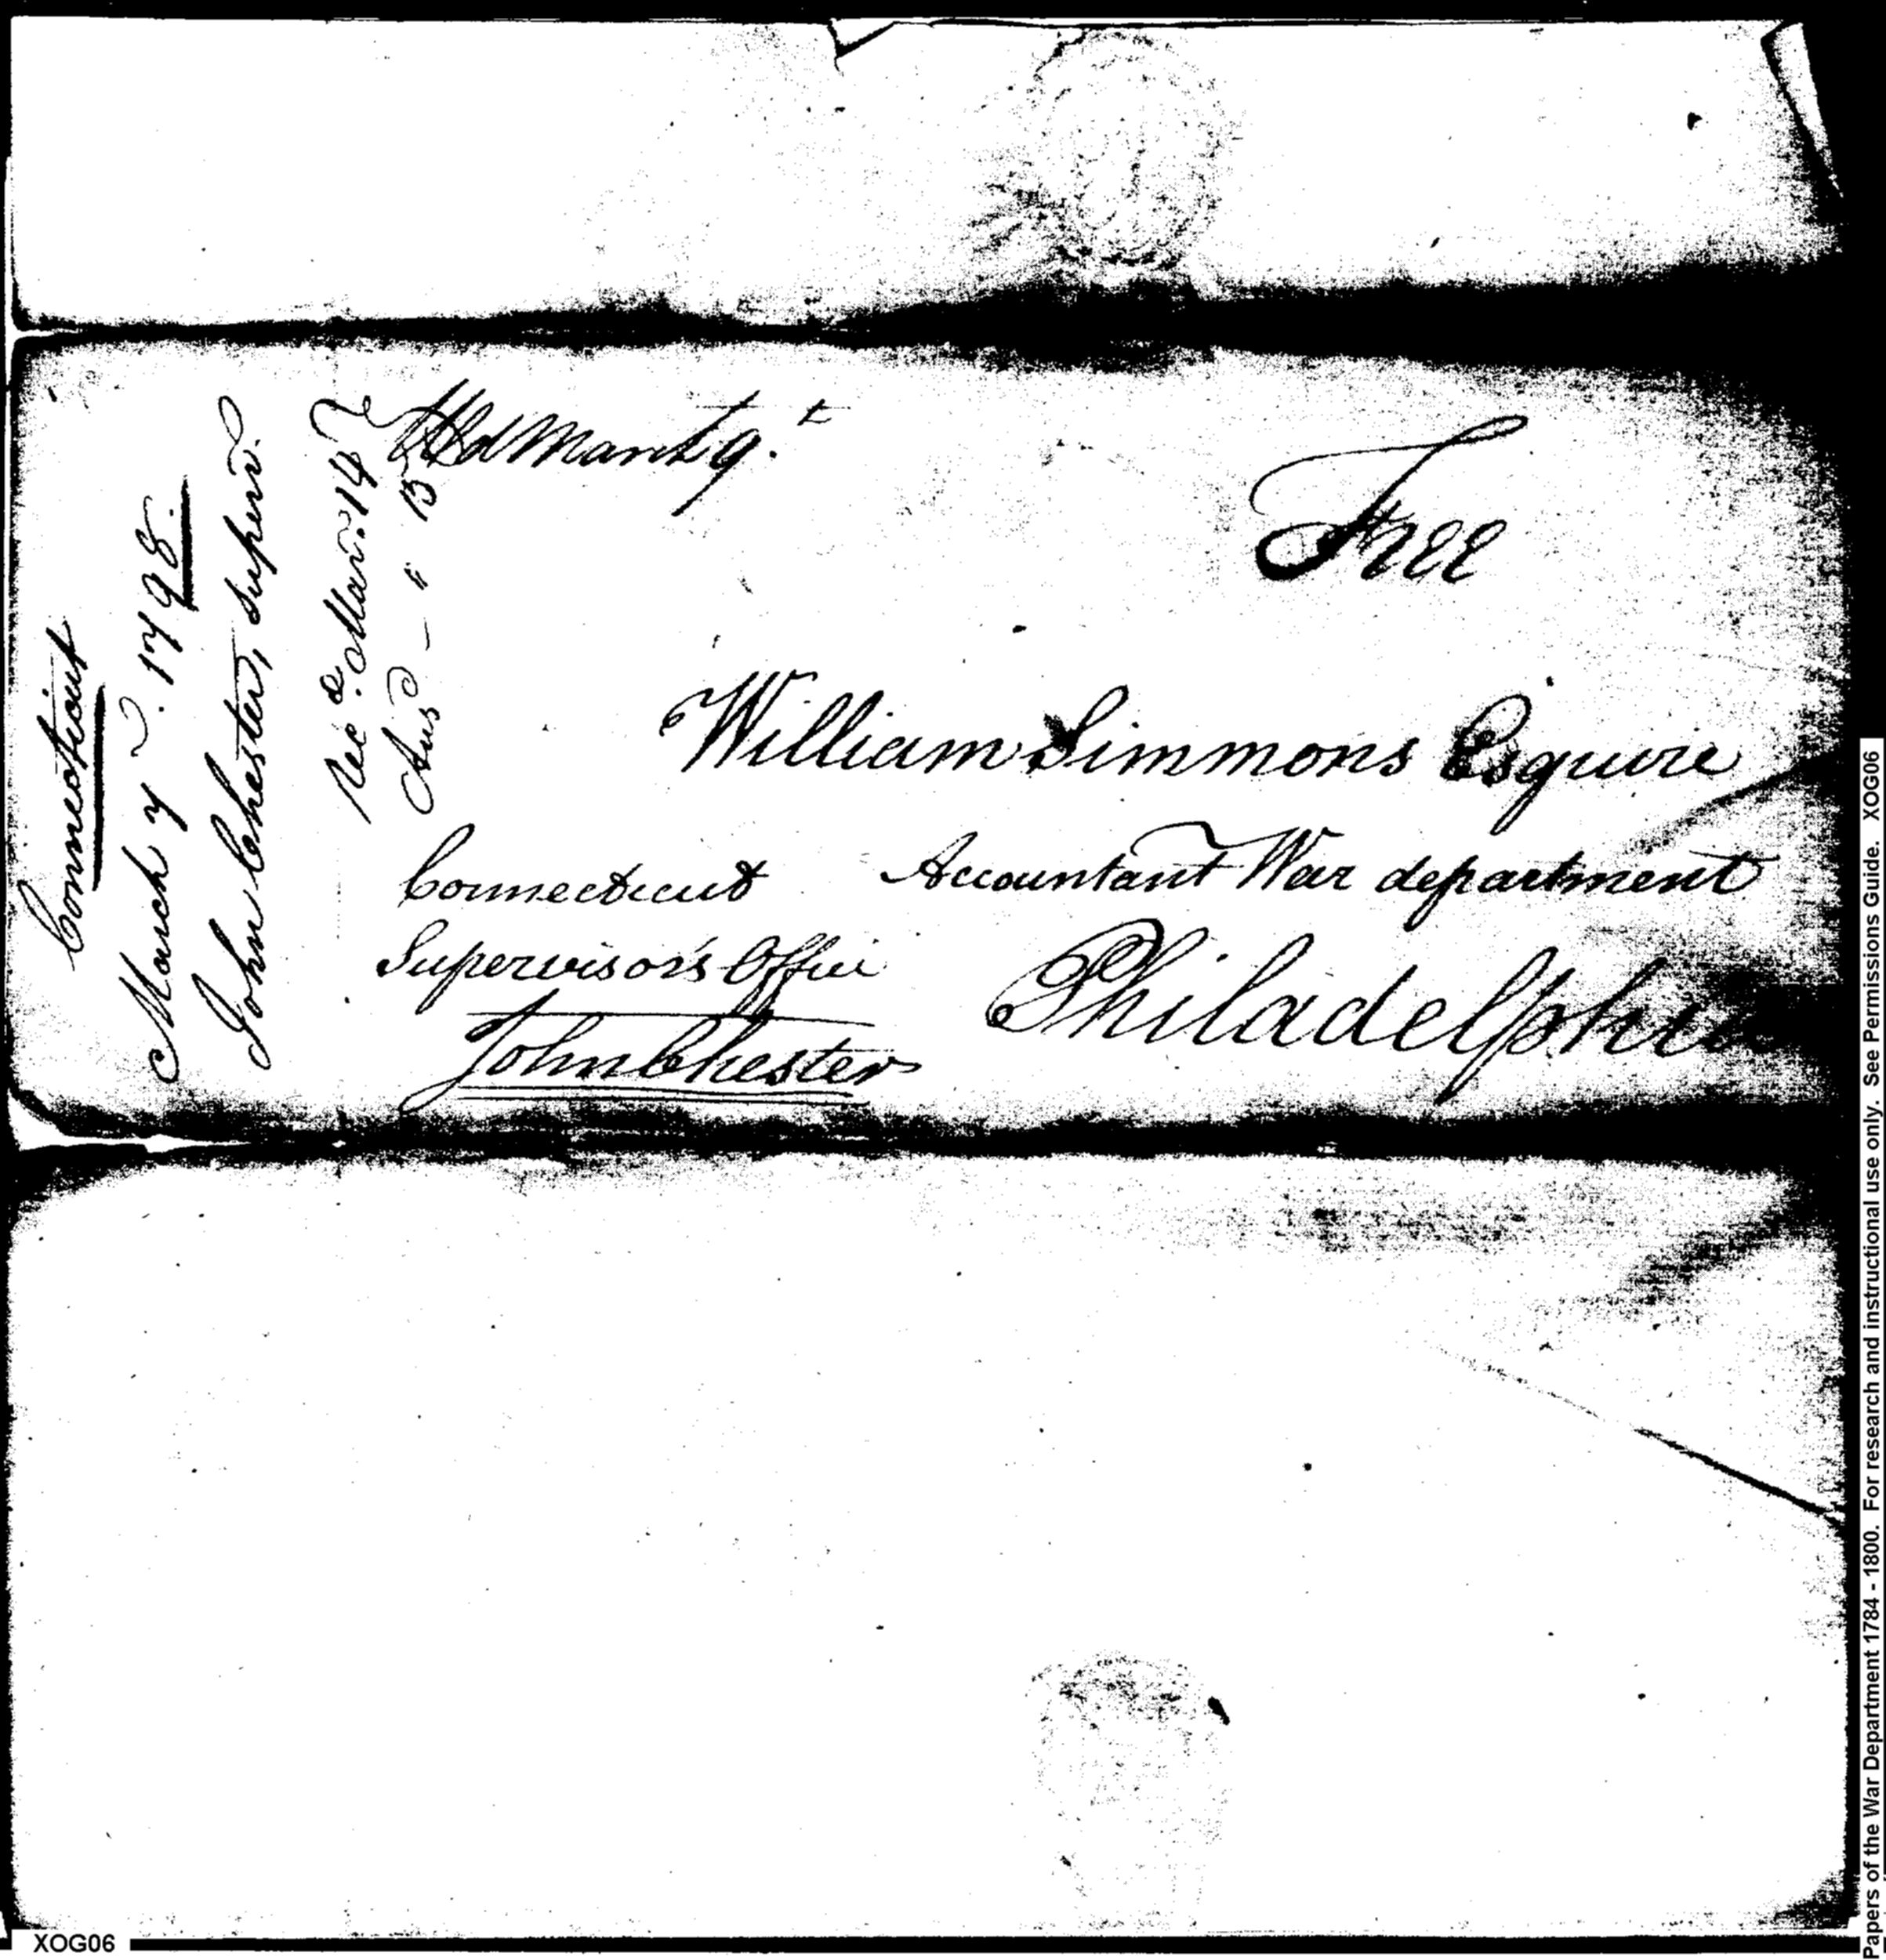 Connecticut
March 7. 1798.
John Chester, Superv.
Rec.d Mar. 14
Ans - " 15
Mar 9.t
Free
William Simmons Esquire
Accountant War department
Philadelphia
Connecticut
Supervisor's Office
John Chester
Papers of the War Department 1784 - 1800. For research and instructional use only. See Permissions Guide. XOG06
XOG06